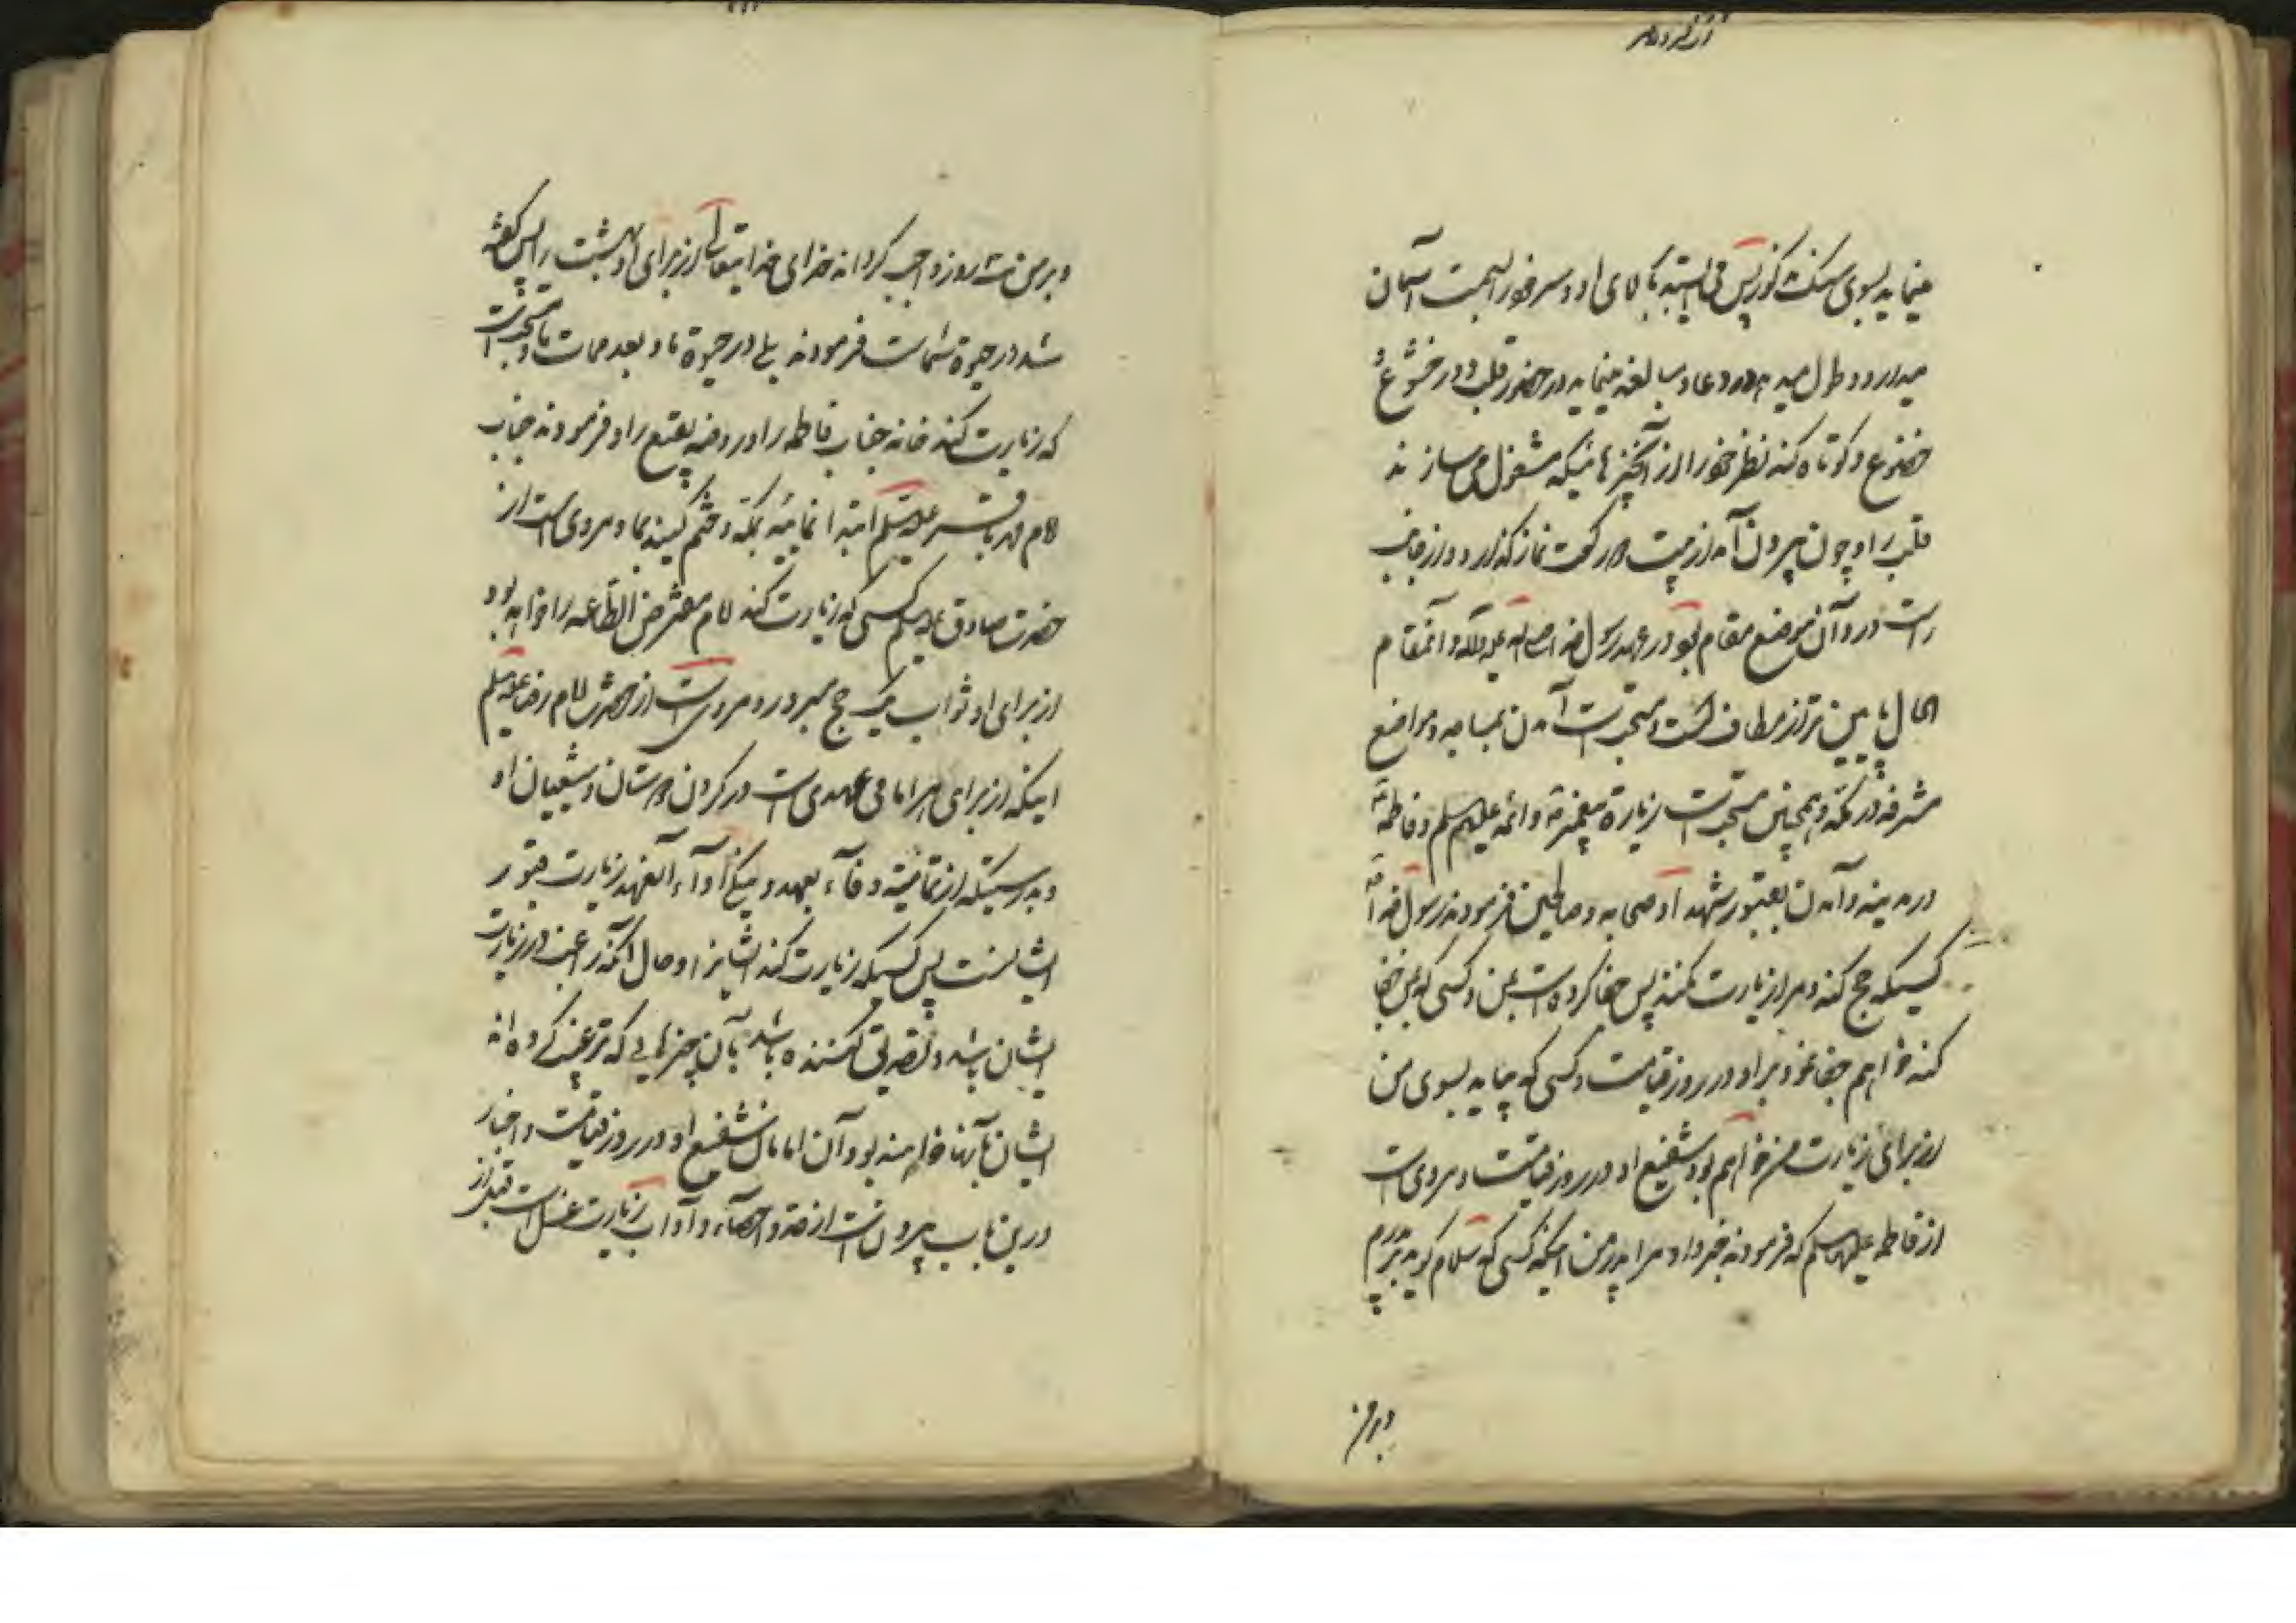 مینماید بسوی سنک مذکور پس می ایستد ببالای او و سر خود را بسمت آسمان
میدارد و طول میدهد در دعا و مبالغه مینماید در حضور قلب و در خشوع
خضوع و کوتاه کند نظر خود را از آنچیزهائیکه مشغول می سازند
قلب را و چون بیرون آمد از بیت دو رکعت نماز گذارد و در جانب
راست در و آن موضع مقام بود در عهد رسول خدا صلی الله علیه وآله و آنمقام
الحال پایین تر از مطاف است و مستحبست آمدن بمساجد و مواضع
مشرفه در مکه و همچنین مستحبست زیارة پیغمبر و ائمه علیهم السلم و فاطمه
در مدینه و آمدن بقبور شهدا و صحابه و صالحین فرمودند رسول خدا
کسیکه حج کند و مرا زیارت نکند پس جفا کرده است بمن و کسی که بمن جفا
کند خواهم جفا نمود بر او در روز قیامت و کسی که بیاید بسوی من
از برای زیارت من خواهم بود شفیع او در روز قیامت و مرویست
از فاطمه علیها السلم که فرمودند خبر داد مرا پدر من اینکه کسی که سلام گوید بر پدرم
و بر من
و بر من سه روز واجب گرداند خدای خدایتعالی از برای او بهشت را پس گفته
شد در حیوة شماست فرمودند بلی در حیوة ما و بعد ممات ما و مستحبست
که زیارت کند خانه جناب فاطمه را و روضه بقیع را و فرمودند جناب
امام محمد باقر علیه السلم ابتدا نمائید بمکه و ختم کنید بما و مرویست از
حضرت صادق علیه السلم کسی که زیارت کند امام مفترض الطاعه را خواهد بود
از برای او ثواب یک حج مبرور و مرویست از حضرت امام رضا علیه السلم
اینکه از برای هر امامی عهدی است در کردن دوستان و شیعیان او
و بدرستیکه از تمامیت وفآء بعهد و نیکی ادآء آنعهد زیارت قبور
ایشانست پس کسیکه زیارت کند ایشانرا و حال آنکه راغب در زیارت
ایشان باشد و تصدیق کننده باشد بآن چیزهایی که ترغیب کرده اند
ایشان بآنها خواهند بود آن امامان شفیع او در روز قیامت و اخبار
در این باب بیرون است از حد و احصآء و آداب زیارت غسل است قبل از